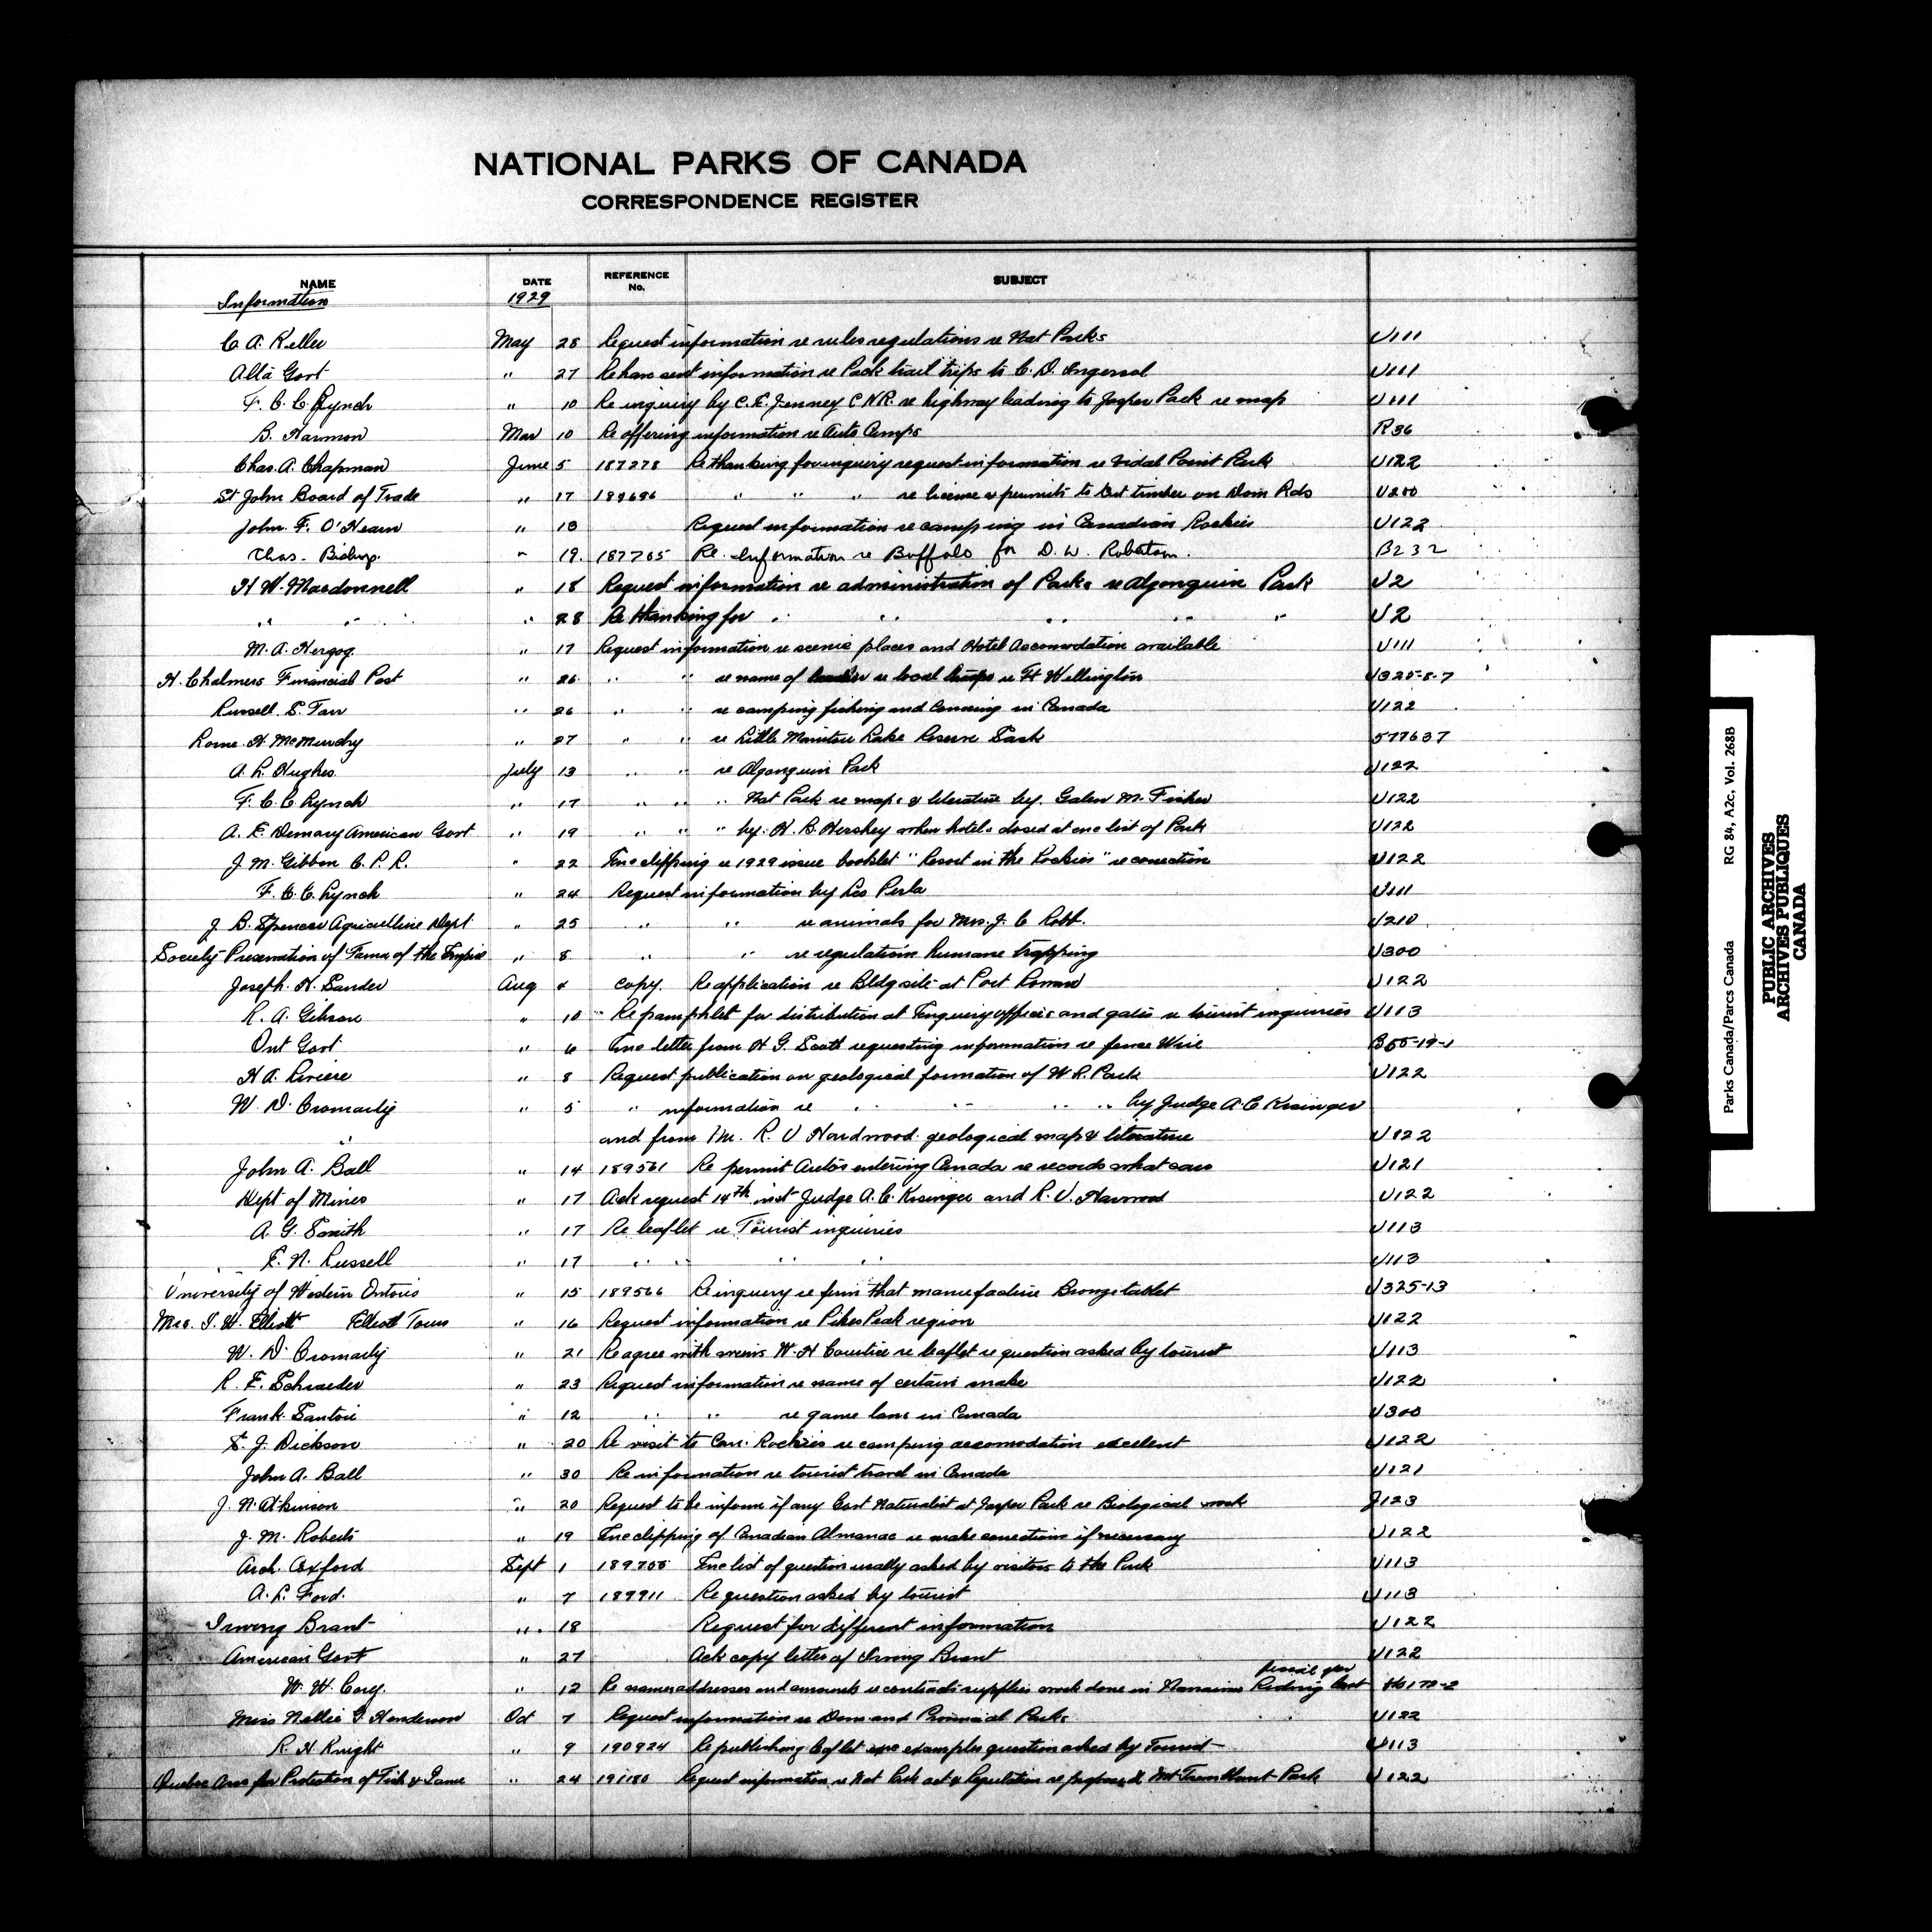 NATIONAL PARKS OF CANADA
CORRESPONDENCE REGISTER
NAME DATE REFERENCE No. SUBJECT
Information 1929
C. A. Keller May 28 Request information re rules regulations re Nat Parks U111
Alta Govt " 27 Re have sent information re Pack trail trips to C. D. Ingersol U111
F. C. C. Lynch " 10 Re inquiry by C. E. Jenney C N R. re highway leading to Jasper Park re map U111
B. Harmon Mar 10 Re offering information re Auto Camps R36
Chas. A. Chapman June 5 187278 Re thanking for inquiry request information re Vidal Point Park U122
St John Board of Trade " 17 189686 " " " re license & permits to cut timber on Dom Rds U200
John. F. O'Hearn " 18 Request information re camping in Canadian Rockies U122
Chas. Bishop. " 19. 187765 Re. Information re Buffalo for D. W. Robertson. B232
H. W. Macdonnell " 18 Request information re administration of Parks re Algonquin Park U2
" " " 28 Re thanking for " " " " " U2
M. A. Herzog " 17 Request information re scenic places and Hotel Accomodation available U111
H. Chalmers Financial Post " 26 " " re name of re local re Ft Wellington U325-8-7
Russell. S. Tarr " 26 " " re camping fishing and Canoeing in Canada U122
Lorne. H. McMurdry " 27 " " re Little Manitou Lake Reserve Sask 577637
A. L. Hughes. July 13 " " re Algonquin Park U122
F. C. C. Lynch " 17 " " " Nat Park re maps & literature by. Galen M. Fisher U122
A. E. Demary American Govt " 19 " " " by. H. B. Hershey when hotels closed at enc list of Park U122
J. M. Gibbon C. P. R. " 22 Enc clipping re 1929 issue booklet "Resort in the Rockies" re correction U122
F. C. C. Lynch " 24 Request information by Leo Perla U111
J. B. Spencer Agriculture Dept " 25 " " re animals for Mrs. J. C. Robb. U210
Society Preservation of Fauna of the Empire " 8 " " re regulations humane trapping U300
Joseph. H. Sander Aug 4 copy. Re application re Bldg site at Port U122
R. A. Gibson " 10 Re pamphlet for distribution at Enquiry offices and gates re tourist inquiries U113
Ont Govt " 6 Enc letter from H. G. Scott requesting information re fence Wire B55-19-1
H. A. Riviere " 8 Request publication on geological formation of W. L. Park U122
W. D. Cromarty " 5 " information re " " " " by Judge A. C. Krisinger
" and from Mr. R. V Hardwood. geological map & literature U122
John A. Ball " 14 189561 Re permit Autos entering Canada re records what cars U121
Dept of Mines " 17 Ack request 14th inst Judge A. C. Krisinger and R. V. Harwood U122
A. G. Smith " 17 Re leaflet re Tourist inquiries U113
E. N. Russell " 17 " " " " U113
University of Western Ontario " 15 189566 Re inquiry re firm that manufacture Bronze tablet U325-13
Mrs. I. W. Elliott Elliott Tours " 16 Request information re Pikes Peak region U122
W. D. Cromarty " 21 Re agree with views W. H Courtice re leaflet re question asked by tourist U113
R. F. Schraeder " 23 Request information re name of certain snake U122
Frank. Santori " 12 " " re game laws in Canada U300
S. J. Dickson " 20 Re visit to Can. Rockies re camping accomodation excellent U122
John A. Ball " 30 Re information re tourist travel in Canada U121
J. N. Atkinson " 20 Request to be inform if any Govt Naturalist at Jasper Park re Biological work J123
J. M. Roberts " 19 Enc clipping of Canadian Almanac re make corrections if necessary U122
Arch. Oxford Sept 1 189755 Enc list of question usally asked by visitors to the Park U113
A. L. Ford. " 7 189911 Re question asked by tourist U113
Irwing Brant " 18 Request for different information U122
American Govt " 27 Ack copy letter of Irwing Brant U122
fiscal year
W. W. Cory. " 12 Re names addresses and amounts re contracts supplies work done in Nanaimo Riding 172-2
Miss Nellie G. Henderson Oct 7 Request information re Dom. and Provincial Parks U122
R. H. Knight " 9 190924 Re publishing leaflet enc examples question asked by Tourist U113
Quebec Assn for Protection of Fish & Game " 24 191180 Request information re Nat Park act & Regulation re proposed Mt Tremblant Park U122
Parks Canada/Parcs Canada RG 84, A2c, Vol. 268B
PUBLIC ARCHIVES
ARCHIVES PUBLIQUES
CANADA